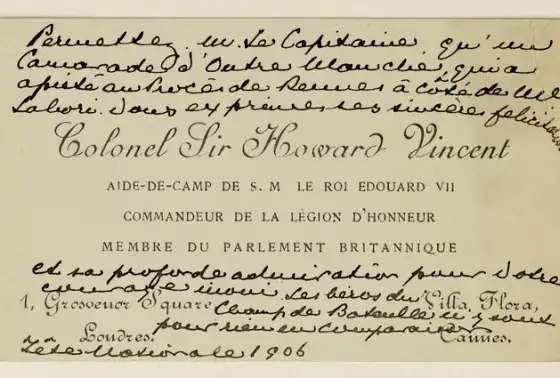 Permettez, M. Le Capitaine, qu'un
Camarade d'Outre Manche, qui a
assisté au Procès de Rennes à côté de Me
Labori. Vous exprimes ses sincères felicitations
Colonel Sir Howard Vincent
AIDE-DE-CAMP DE S. M LE ROI EDOUARD VII
COMMANDEUR DE LA LÉGION D'HONNEUR
MEMBRE DU PARLEMENT BRITANNIQUE
et sa profonde admiration pour votre
courage moral. Les héros du
1, Grosvenor Square Villa Flora,
Champ de Bataille n'y sont
pour rien en comparaison
Londres. Cannes.
Fête Nationale 1906